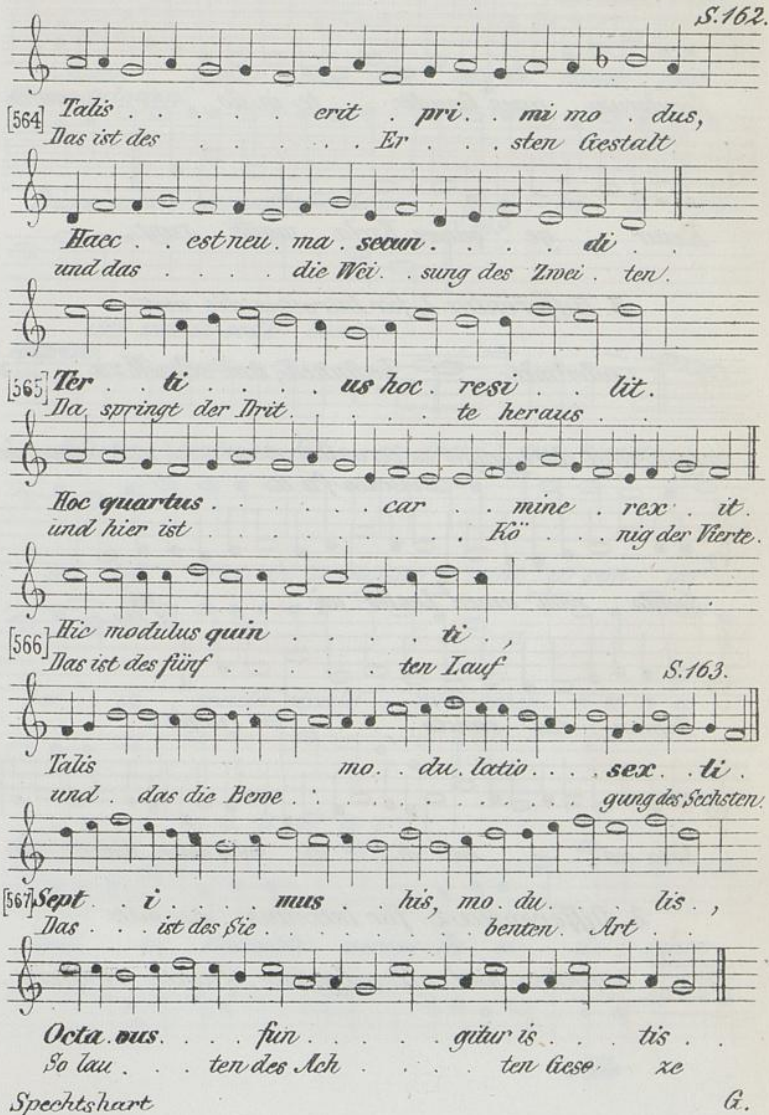 S.162.
[564] Talis . . . . . erit . pri . . mi mo . dus,
Das ist des . . . . . . Er . . . sten Gestalt
Haec . . est neu . ma . secun . . . . . di .
und das . . . . die Wei . . sung des Zwei . ten.
[565] Ter . . ti . . . . . us hoc . resi . . lit.
Da springt der Drit . . . . . te heraus . .
Hoc quartus . . . . . . car . . mine . rex . it.
und hier ist . . . . . . . . Kö . . . nig der Vierte.
[566] Hic modulus quin . . . . . ti . ,
Das ist des fünf . . . . . ten Lauf S.163.
Talis mo . . du . latio . . . . sex . . ti .
und . das die Bewe . . . . . . . . gung des Sechsten.
[567] Sept . . i . . . . mus . . his, mo . du . . . lis . ,
Das . . . ist des Sie . . . . . . benten . Art . .
Octa . vus . . . . fun . . . . . gitur is . . . tis . .
So lau . . . ten des Ach . . . . . ten Gese ze
Spechtshart G.